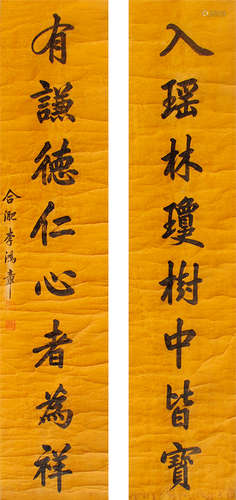 入瑶林瓊樹中皆寶
有謙德仁心者為祥
合肥李鴻章